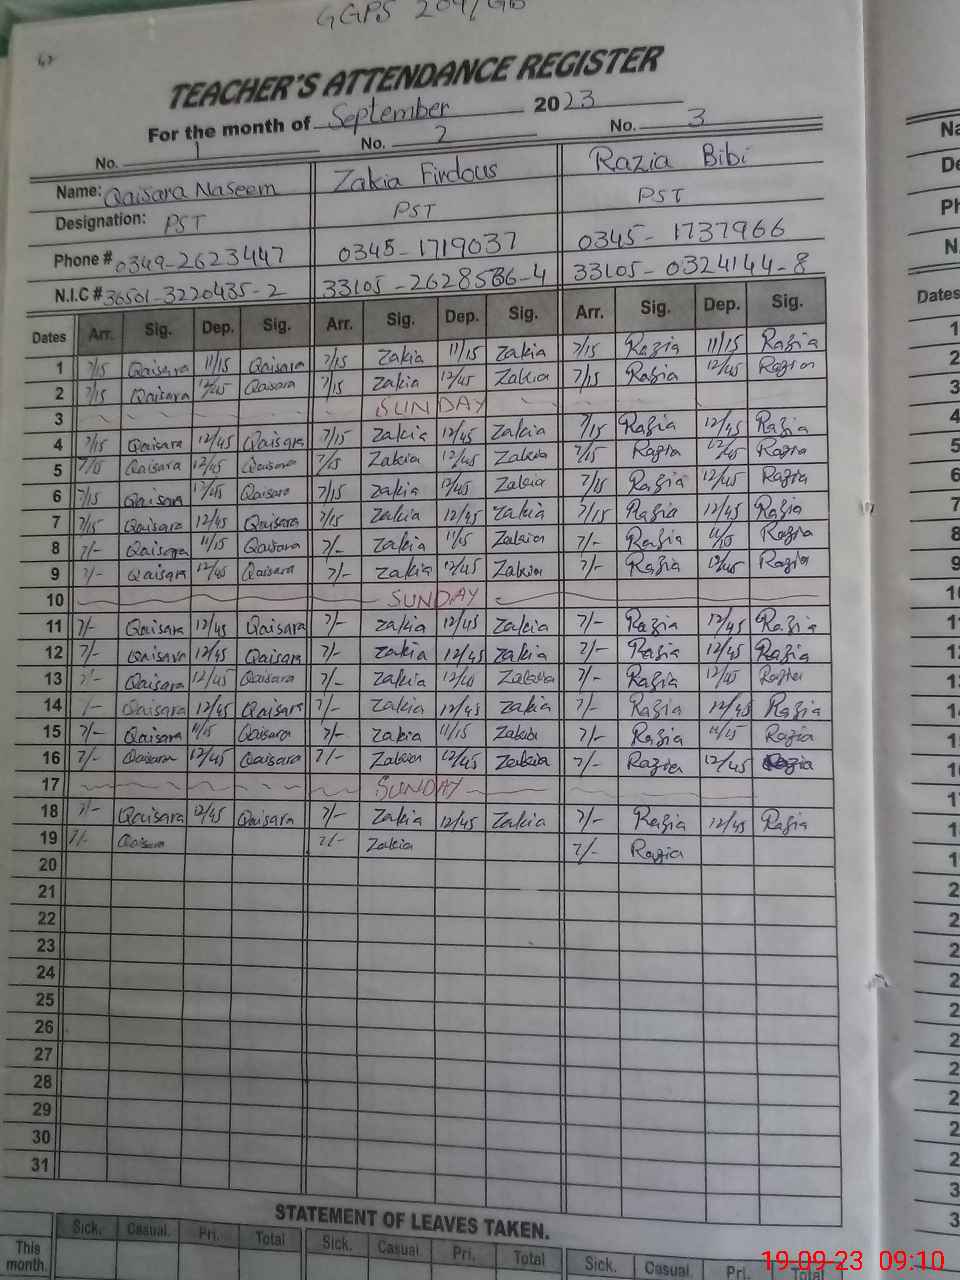 GGPS 204/GB
TEACHER'S ATTENDANCE REGISTER
For the month of September 2023
No. 1 No. 2 No. 3
Name: Qaisara Naseem Zakia Firdous Razia Bibi
Designation: PST PST PST
Phone # 0349-2623447 0345-1719037 0345-1737966
N.I.C # 36501-3220435-2 33105-2628566-4 33105-0324144-8
Dates Arr. Sig. Dep. Sig. Arr. Sig. Dep. Sig. Arr. Sig. Dep. Sig.
1 7/15 Qaisara 11/15 Qaisara 7/15 Zakia 11/15 Zakia 7/15 Razia 11/15 Razia
2 7/15 Qaisara 12/45 Qaisara 7/15 Zakia 12/45 Zakia 7/15 Razia 12/45 Razia
3 SUNDAY
4 7/15 Qaisara 12/45 Qaisara 7/15 Zakia 12/45 Zakia 7/15 Razia 12/45 Razia
5 7/15 Qaisara 12/45 Qaisara 7/15 Zakia 12/45 Zakia 7/15 Razia 12/45 Razia
6 7/15 Qaisara 12/45 Qaisara 7/15 Zakia 12/45 Zakia 7/15 Razia 12/45 Razia
7 7/15 Qaisara 12/45 Qaisara 7/15 Zakia 12/45 Zakia 7/15 Razia 12/45 Razia
8 7/- Qaisara 11/15 Qaisara 7/- Zakia 11/15 Zakia 7/- Razia 11/15 Razia
9 7/- Qaisara 12/45 Qaisara 7/- Zakia 12/45 Zakia 7/- Razia 12/45 Razia
10 SUNDAY
11 7/- Qaisara 12/45 Qaisara 7/- Zakia 12/45 Zakia 7/- Razia 12/45 Razia
12 7/- Qaisara 12/45 Qaisara 7/- Zakia 12/45 Zakia 7/- Razia 12/45 Razia
13 7/- Qaisara 12/45 Qaisara 7/- Zakia Zakia 7/- Razia 12/45 Razia
14 7/- Qaisara 12/45 Qaisara 7/- Zakia 12/45 Zakia 7/- Razia 12/45 Razia
15 7/- Qaisara 11/15 Qaisara 7/- Zakia 11/15 Zakia 7/- Razia 11/15 Razia
16 7/- Qaisara 12/45 Qaisara 7/- Zakia 12/45 Zakia 7/- Razia 12/45 Razia
17 SUNDAY
18 7/- Qaisara 12/45 Qaisara 7/- Zakia 12/45 Zakia 7/- Razia 12/45 Razia
19 7/- Qaisara 7/- Zakia 7/- Razia
20
21
22
23
24
25
26
27
28
29
30
31
STATEMENT OF LEAVES TAKEN.
Sick. Casual. Pri. Total Sick. Casual. Pri. Total Sick. Casual. Pri. Total
This month.
19-09-23 09:10